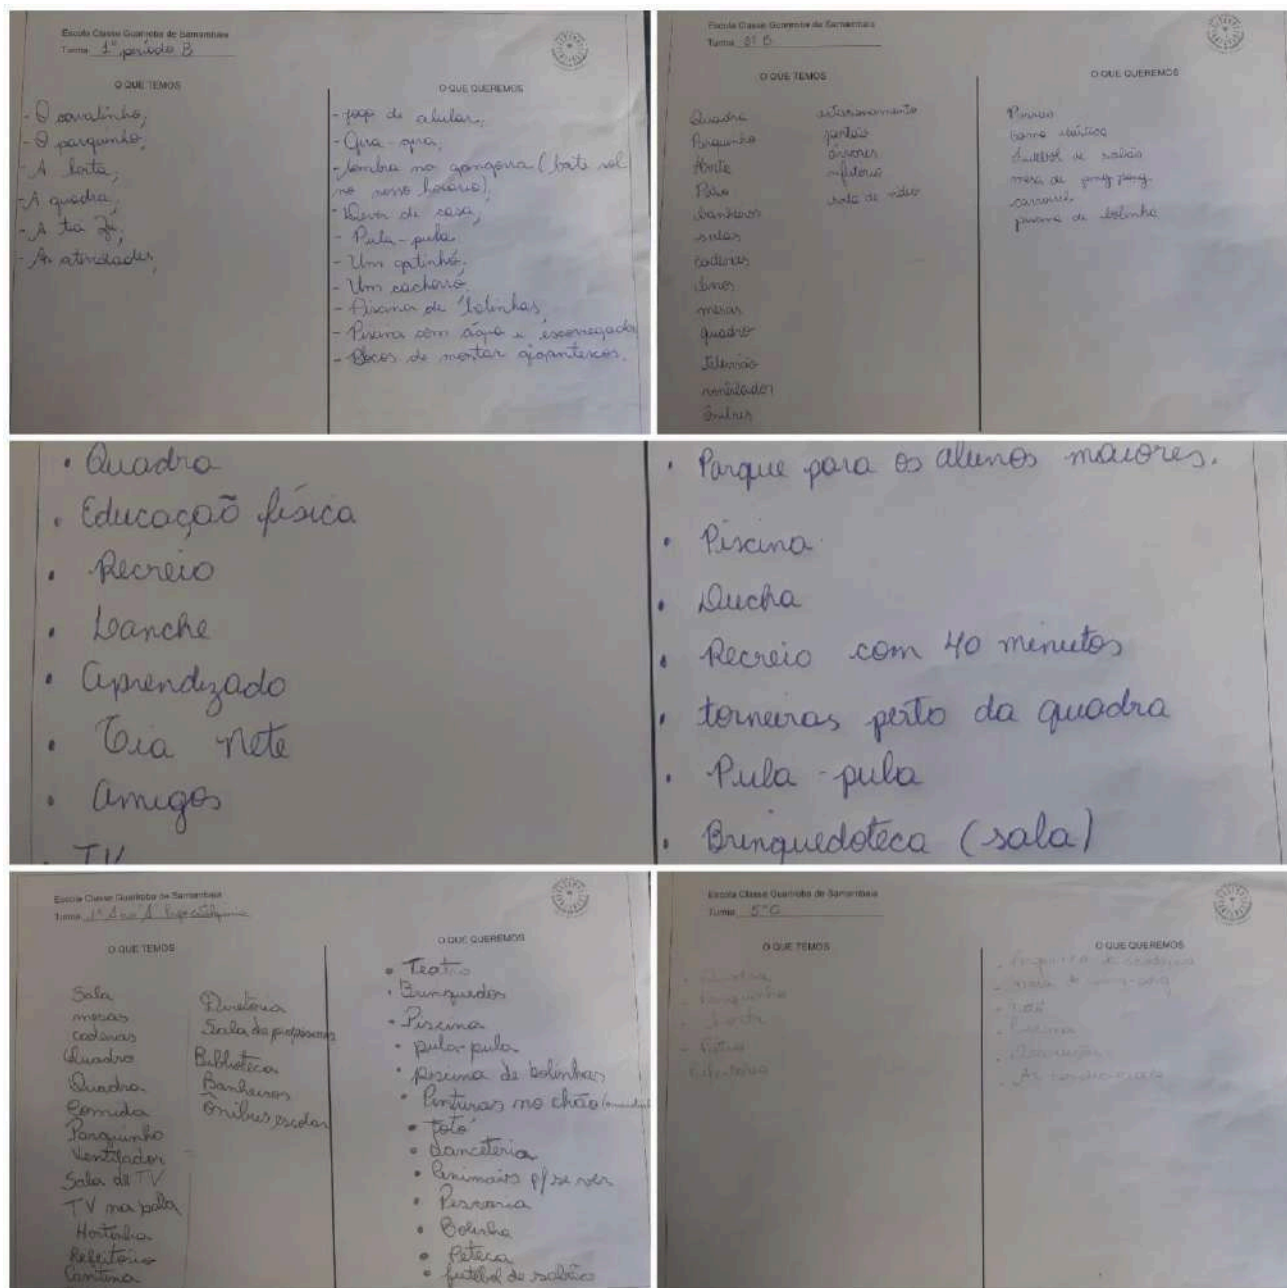 Escola Classe Guariroba de Samambaia
Turma 1º período B
O QUE TEMOS
- O parquinho;
- A horta;
- A quadra;
- A tia
- As atividades;
O QUE QUEREMOS
- jogo de celular;
- Gira-gira;
- Sombra na gangorra (bate sol
no nosso horário);
- Dever de casa;
- Pula-pula
- Um gatinho;
- Um cachorro;
- Piscina de bolinhas;
- Piscina com água e escorregador
- Blocos de montar gigantescos.
Escola Classe Guariroba de Samambaia
Turma B
O QUE TEMOS
Quadra
Parquinho
Horta
Pátio
banheiros
salas
cadeiras
livros
mesas
quadro
televisão
ventilador
estacionamento
portão
árvores
refeitório
sala de vídeo
O QUE QUEREMOS
futebol de sabão
mesa de ping pong
carrossel
piscina de bolinha
• Quadra
• Educação física
• Recreio
• Lanche
• Aprendizado
• Tia Nete
• Amigos
• TV
• Parque para os alunos maiores.
• Piscina
• Ducha
• Recreio com 40 minutos
• torneiras perto da quadra
• Pula-pula
• Brinquedoteca (sala)
Escola Classe Guariroba de Samambaia
Turma 1º Ano A
O QUE TEMOS
Sala
mesas
cadeiras
Quadro
Quadra
Comida
Parquinho
Ventilador
Sala de TV
TV na sala
Hortinha
Refeitório
Cantina
Diretoria
Sala de professores
Biblioteca
Banheiros
Ônibus escolar
O QUE QUEREMOS
• Teatro
• Brinquedos
• Piscina
• pula-pula
• piscina de bolinhas
• Pinturas no chão
• totó
• danceteria
• Animais p/ se ver
• Bolinha
• Peteca
• futebol de sabão
Escola Classe Guariroba de Samambaia
Turma 5º
O QUE TEMOS
- Quadra
- Parquinho
- Horta
Refeitório
O QUE QUEREMOS
- mesa de ping-pong
- Totó
- Piscina
- Ar condicionado